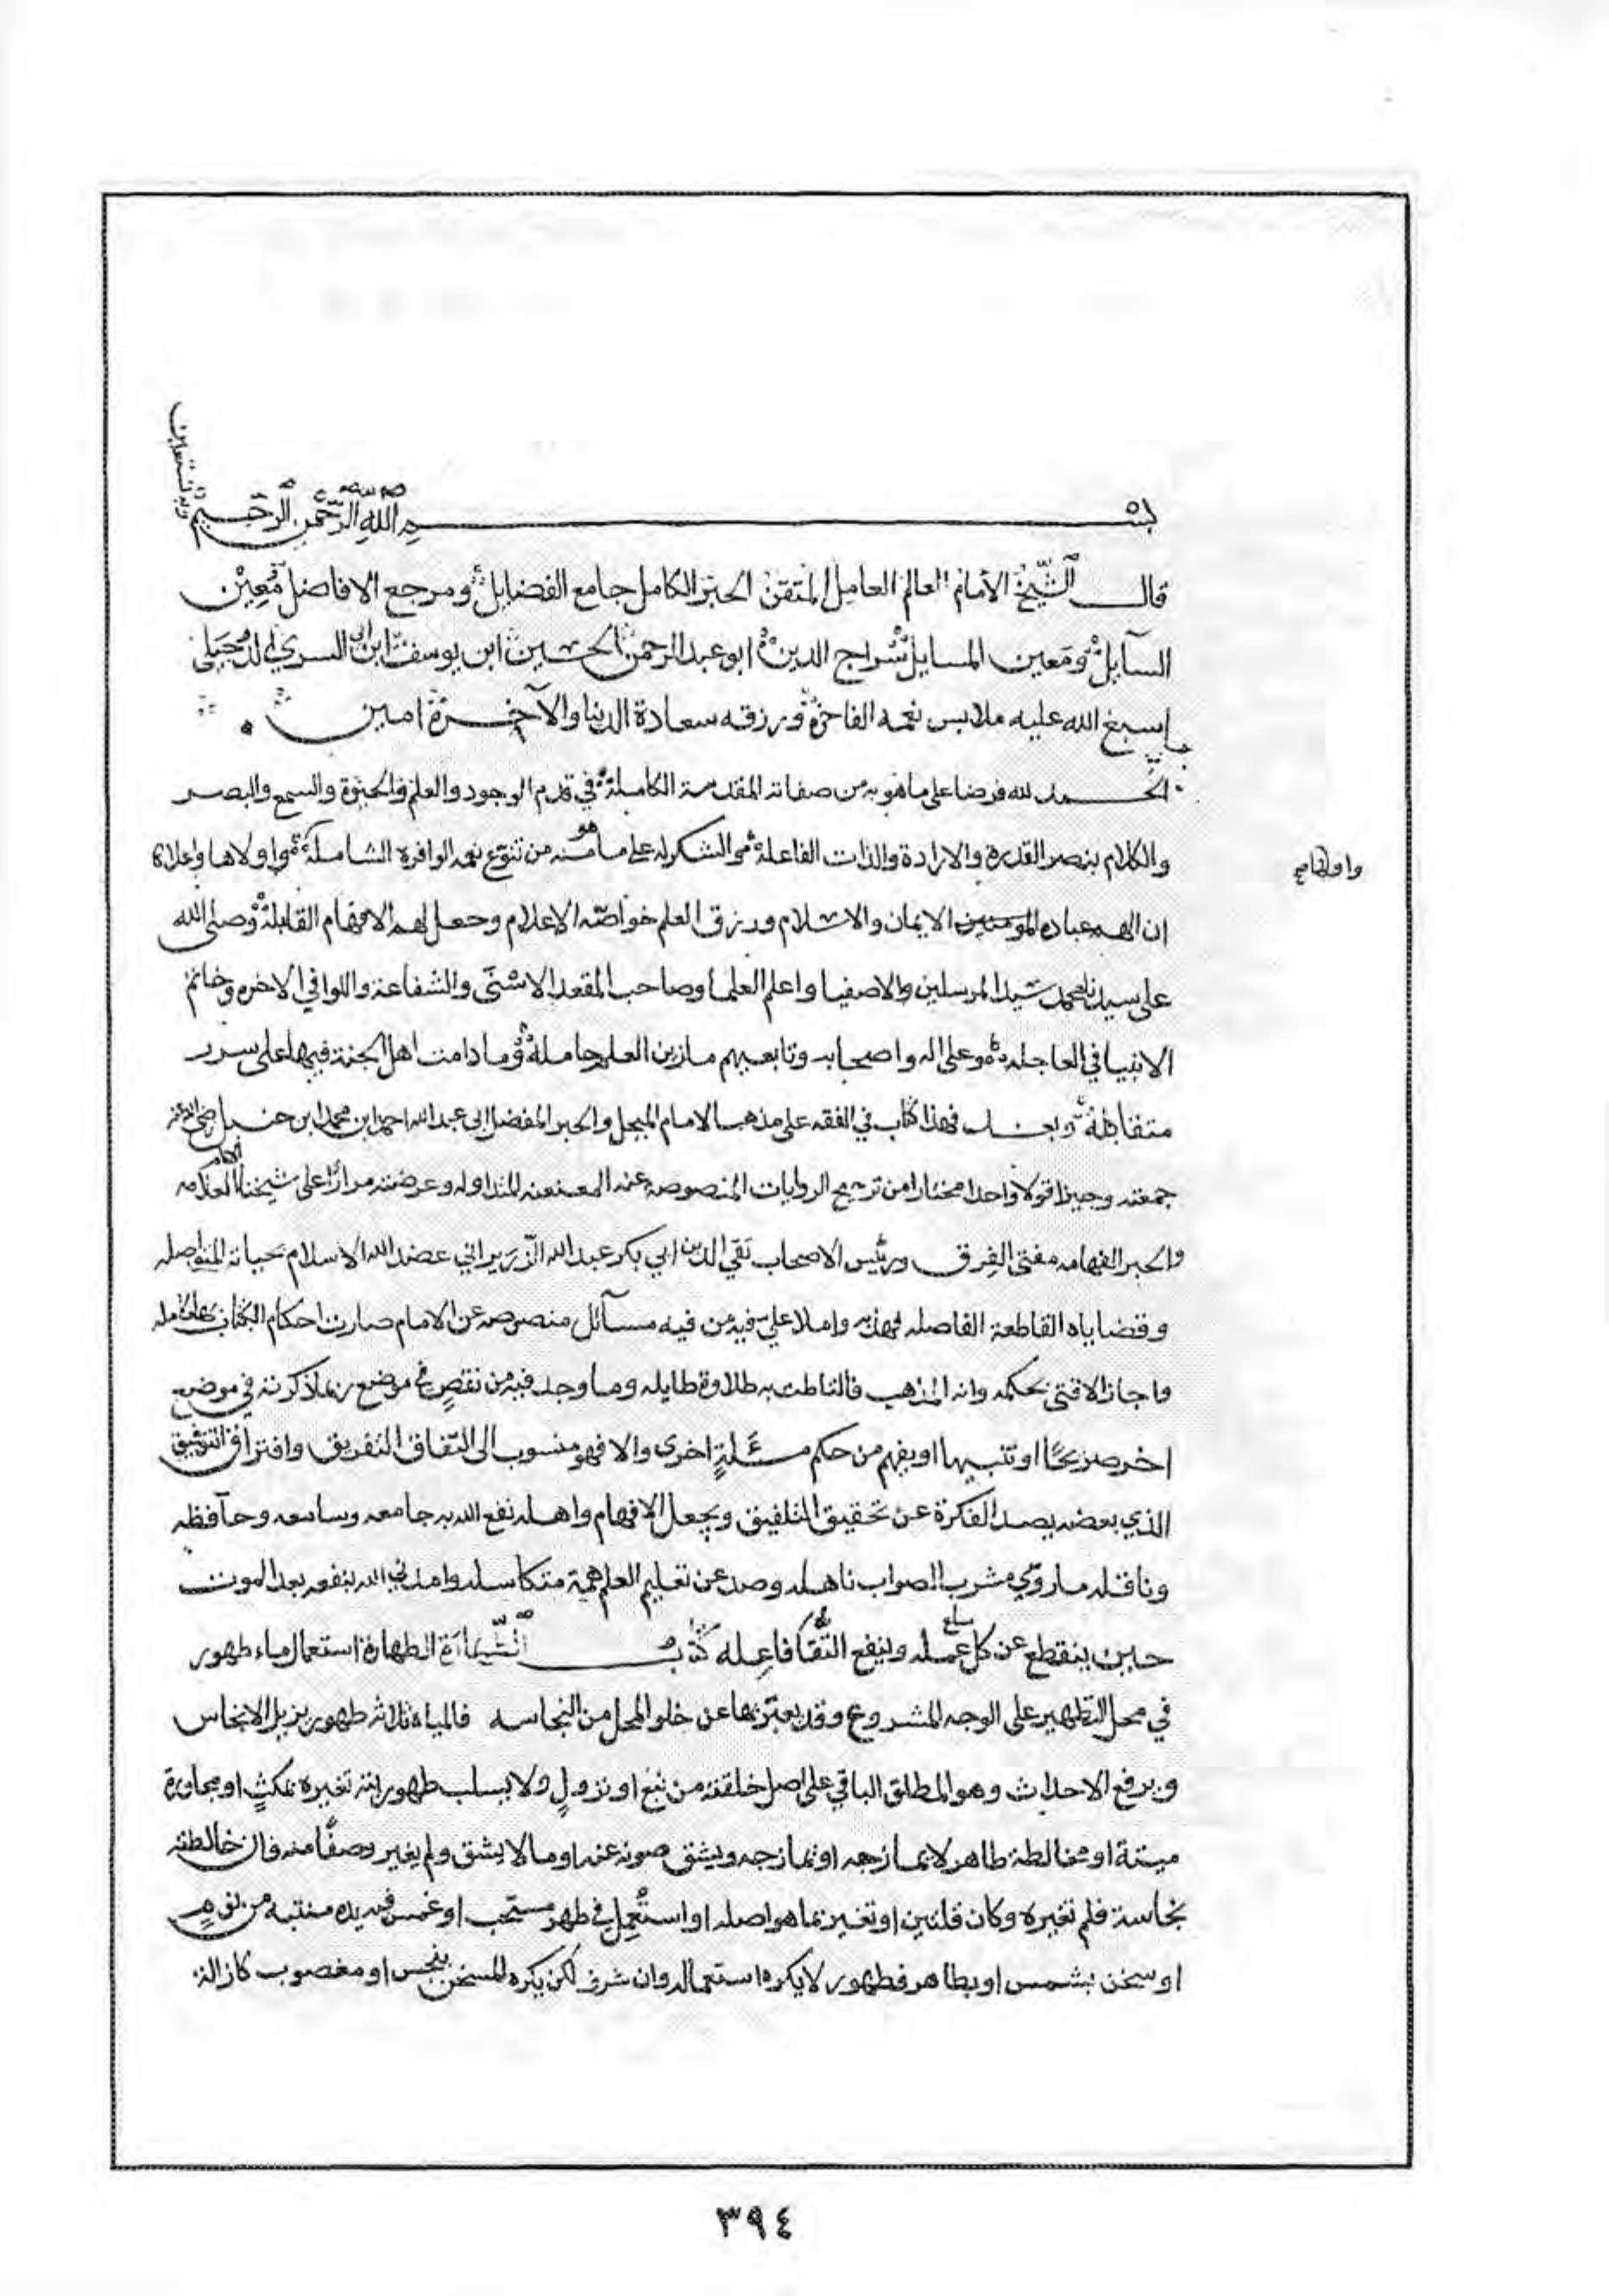 وبه نستعين
بسم الله الرحمن الرحيم
قال الشيخ الأمام العالم العامل المتقن الحبر الكامل جامع الفضايل ومرجع الافاضل معين
السآيل ومعين المسايل سراج الدين ابو عبد الرحمن الحسين ابن يوسف ابن ابي السري الدجيلي
اسبغ الله عليه ملابس نعمه الفاخرة ورزقه سعادة الدنيا والآخرة امين
الحمد لله فرضا على ما هو به من صفاته المقدمة الكاملة في قدم الوجود والعلم والحيوة والسمع والبصر
والكلام بنصر القدرة والارادة والذات الفاعلة والشكر له على ما هو منه من تنوع نعمه الوافرة الشاملة واولاها واعلاها
ان الهم عباده المومنين الايمان والاسلام ورزق العلم خواصه الاعلام وجعل لهم الافهام القابلة وصلى الله
على سيدنا محمد سيد المرسلين والاصفيا واعلم العلما وصاحب المقعد الاسنى والشفاعة واللوا في الاخره وخاتم
الانبيا في العاجله وعلى اله واصحابه وتابعيهم ما زين العلم حامله وما دامت اهل الجنة فيها على سرر
متقابلة وبعد فهذا كتاب في الفقه على مذهب الامام المبجل والحبر المفضل ابي عبد الله احمد ابن محمد ابن حنبل رضي الله عنه
جمعته وجيزا قولا واحدا مختارا من ترجيح الروايات المنصوصة عنه المعنعنه المتداوله وعرضته مرارا على شيخنا الامام العلامه
والحبر الفهامه مفتي الفرق ورئيس الاصحاب تقي الدين ابي بكر عبد الله الزريراني عضد الله الاسلام بحياته المتواصله
وقضاياه القاطعة الفاصله فهذبه واملا علي فيه من فيه مسآئل منصوصه عن الامام صارت احكام الكتاب بها كامله
واجاز الافتى بحكمه وانه المذهب فالناطت به طلاوة طايله وما وجد فيه من نقص في موضع ربما ذكرته في موضع
اخر صريحًا او تنبيها او يفهم من حكم مسئلةٍ اخرى والا فهو منسوب الى اتفاق التفريق وافتراق التوفيق
الذي بعضه يصد الفكرة عن تحقيق التلفيق ويجعل الافهام واهله نفع الله به جامعه وسامعه وحافظه
وناقله ما روي مشرب الصواب ناهله وصد عن تعليم العلم همة متكاسله وامدني الله بنفعه بعد الموت
حين ينقطع عن كل عمله وينفع التقا فاعله كتاب الطهارة الطهارة استعمال ماء طهور
في محل التطهير على الوجه المشروع وقد يعبر بها عن خلو المحل من النجاسه فالمياه ثلاثه طهور يزيل الانجاس
ويرفع الاحداث وهو المطلق الباقي على اصل خلقته من نبع او نزولٍ ولا يسلب طهوريته تغيره بمكثٍ او مجاورة
ميتة او مخالطة طاهر لا يمازجه او يمازجه ويشق صونه عنه او ما لا يشق ولم يغير وصفًا منه فان خالطته
نجاسة فلم تغيره وكان قلتين او تغير بما هو اصله او استُعمِل في طهر مستحب او غمس فيه يده منتبه من نومٍ
او سخن بشمس او بطاهر فطهور لا يكره استعماله وان شرف لكن يكره المسخن بنجس او مغصوب كازالة
٣٩٤